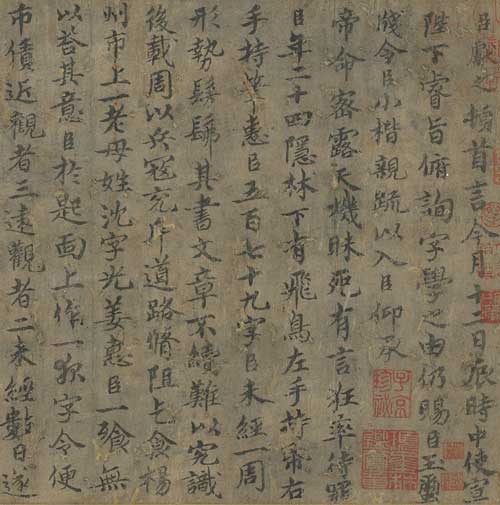 臣獻之頓首言今月十二日辰時中使宣
陛下睿旨俯詢字學之由仍賜臣玉璽
牋令臣小楷親疏以入臣仰承
帝命密露天機昧死有言狂率待罪
臣年二十四隱林下有飛鳥左手持帋右
手持筆惠臣五百七十九字臣未經一周
形勢髣髴其書文章不續難以究識
後載周以兵冦充斥道路脩阻乞食楊
州市上一老母姓沈字光姜惠臣一飡無
以荅其意臣於匙面上作一夜字令便
市債近觀者三遠觀者二未經數日遂